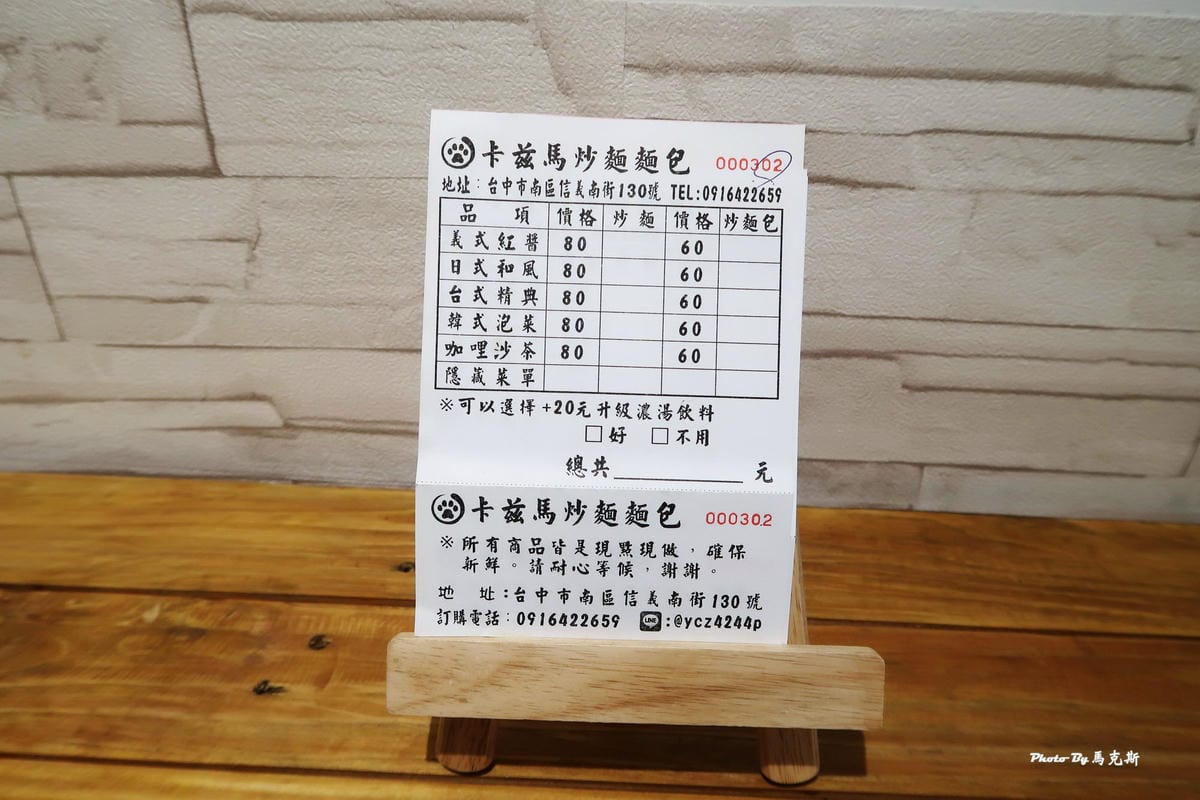 卡茲馬炒麵麵包 000302
地址：台中市南區信義南街130號 TEL:0916422659
品項 價格 炒麵 價格 炒麵包
義式紅醬 80 60
日式和風 80 60
台式精典 80 60
韓式泡菜 80 60
咖哩沙茶 80 60
隱藏菜單
※可以選擇+20元升級濃湯飲料
□好 □不用
總共________元
卡茲馬炒麵麵包 000302
※所有商品皆是現點現做，確保
新鮮。請耐心等候，謝謝。
地址：台中市南區信義南街130號
訂購電話：0916422659 LINE:@ycz4244p
Photo By 馬克斯